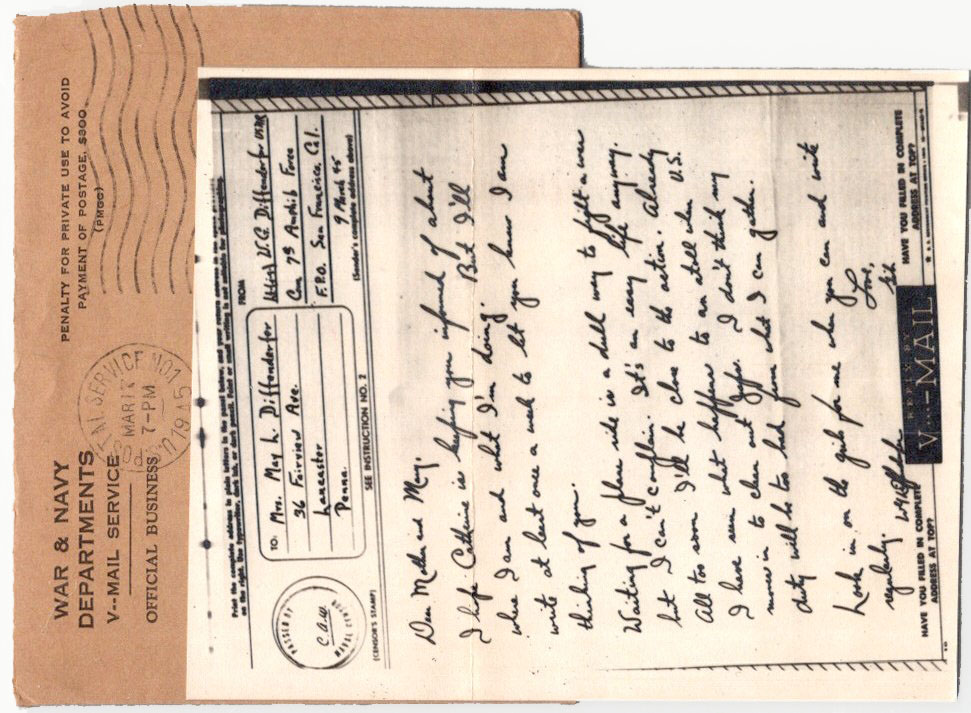 WAR & NAVY
DEPARTMENTS
V--MAIL SERVICE
OFFICIAL BUSINESS
PENALTY FOR PRIVATE USE TO AVOID
PAYMENT OF POSTAGE, $300
(PMGC)
NAVAL SERVICE NO1
MAR 17
7-PM
1945
Print the complete address in plain letters in the panel below, and your return address in the space
on the right. Use typewriter, dark ink, or dark pencil. Faint or small writing is not suitable for photographing.
FROM
TO:
Mrs. May L. Diffenderfer
36 Fairview Ave.
Lancaster
Penna.
W.G. Diffenderfer USNR
7th Amphib Force
F.P.O. San Francisco, Cal.
9 March 45
(Sender's complete address above)
PASSED BY
NAVAL CENSOR
(CENSOR'S STAMP)
SEE INSTRUCTION NO. 2
Dear Mother and May,
I hope Catherine is keeping you informed of about
where I am and what I'm doing. But I'll
write at least once a week to let you know I am
thinking of you.
Waiting for a plane ride is a dull way to fight a war
but I can't complain. It's an easy life anyway.
All too soon I'll be close to the action. Already
I have seen what happens to an atoll when U.S.
moves in to clean out Japs. I don't think my
duty will be too bad from what I can gather.
Look in on the girls for me when you can and write
regularly.
Love,
HAVE YOU FILLED IN COMPLETE
ADDRESS AT TOP?
V...-MAIL
HAVE YOU FILLED IN COMPLETE
ADDRESS AT TOP?